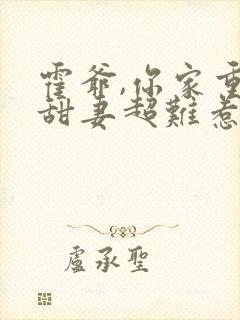 霍爺,你家重
甜妻超難惹
盧承聖